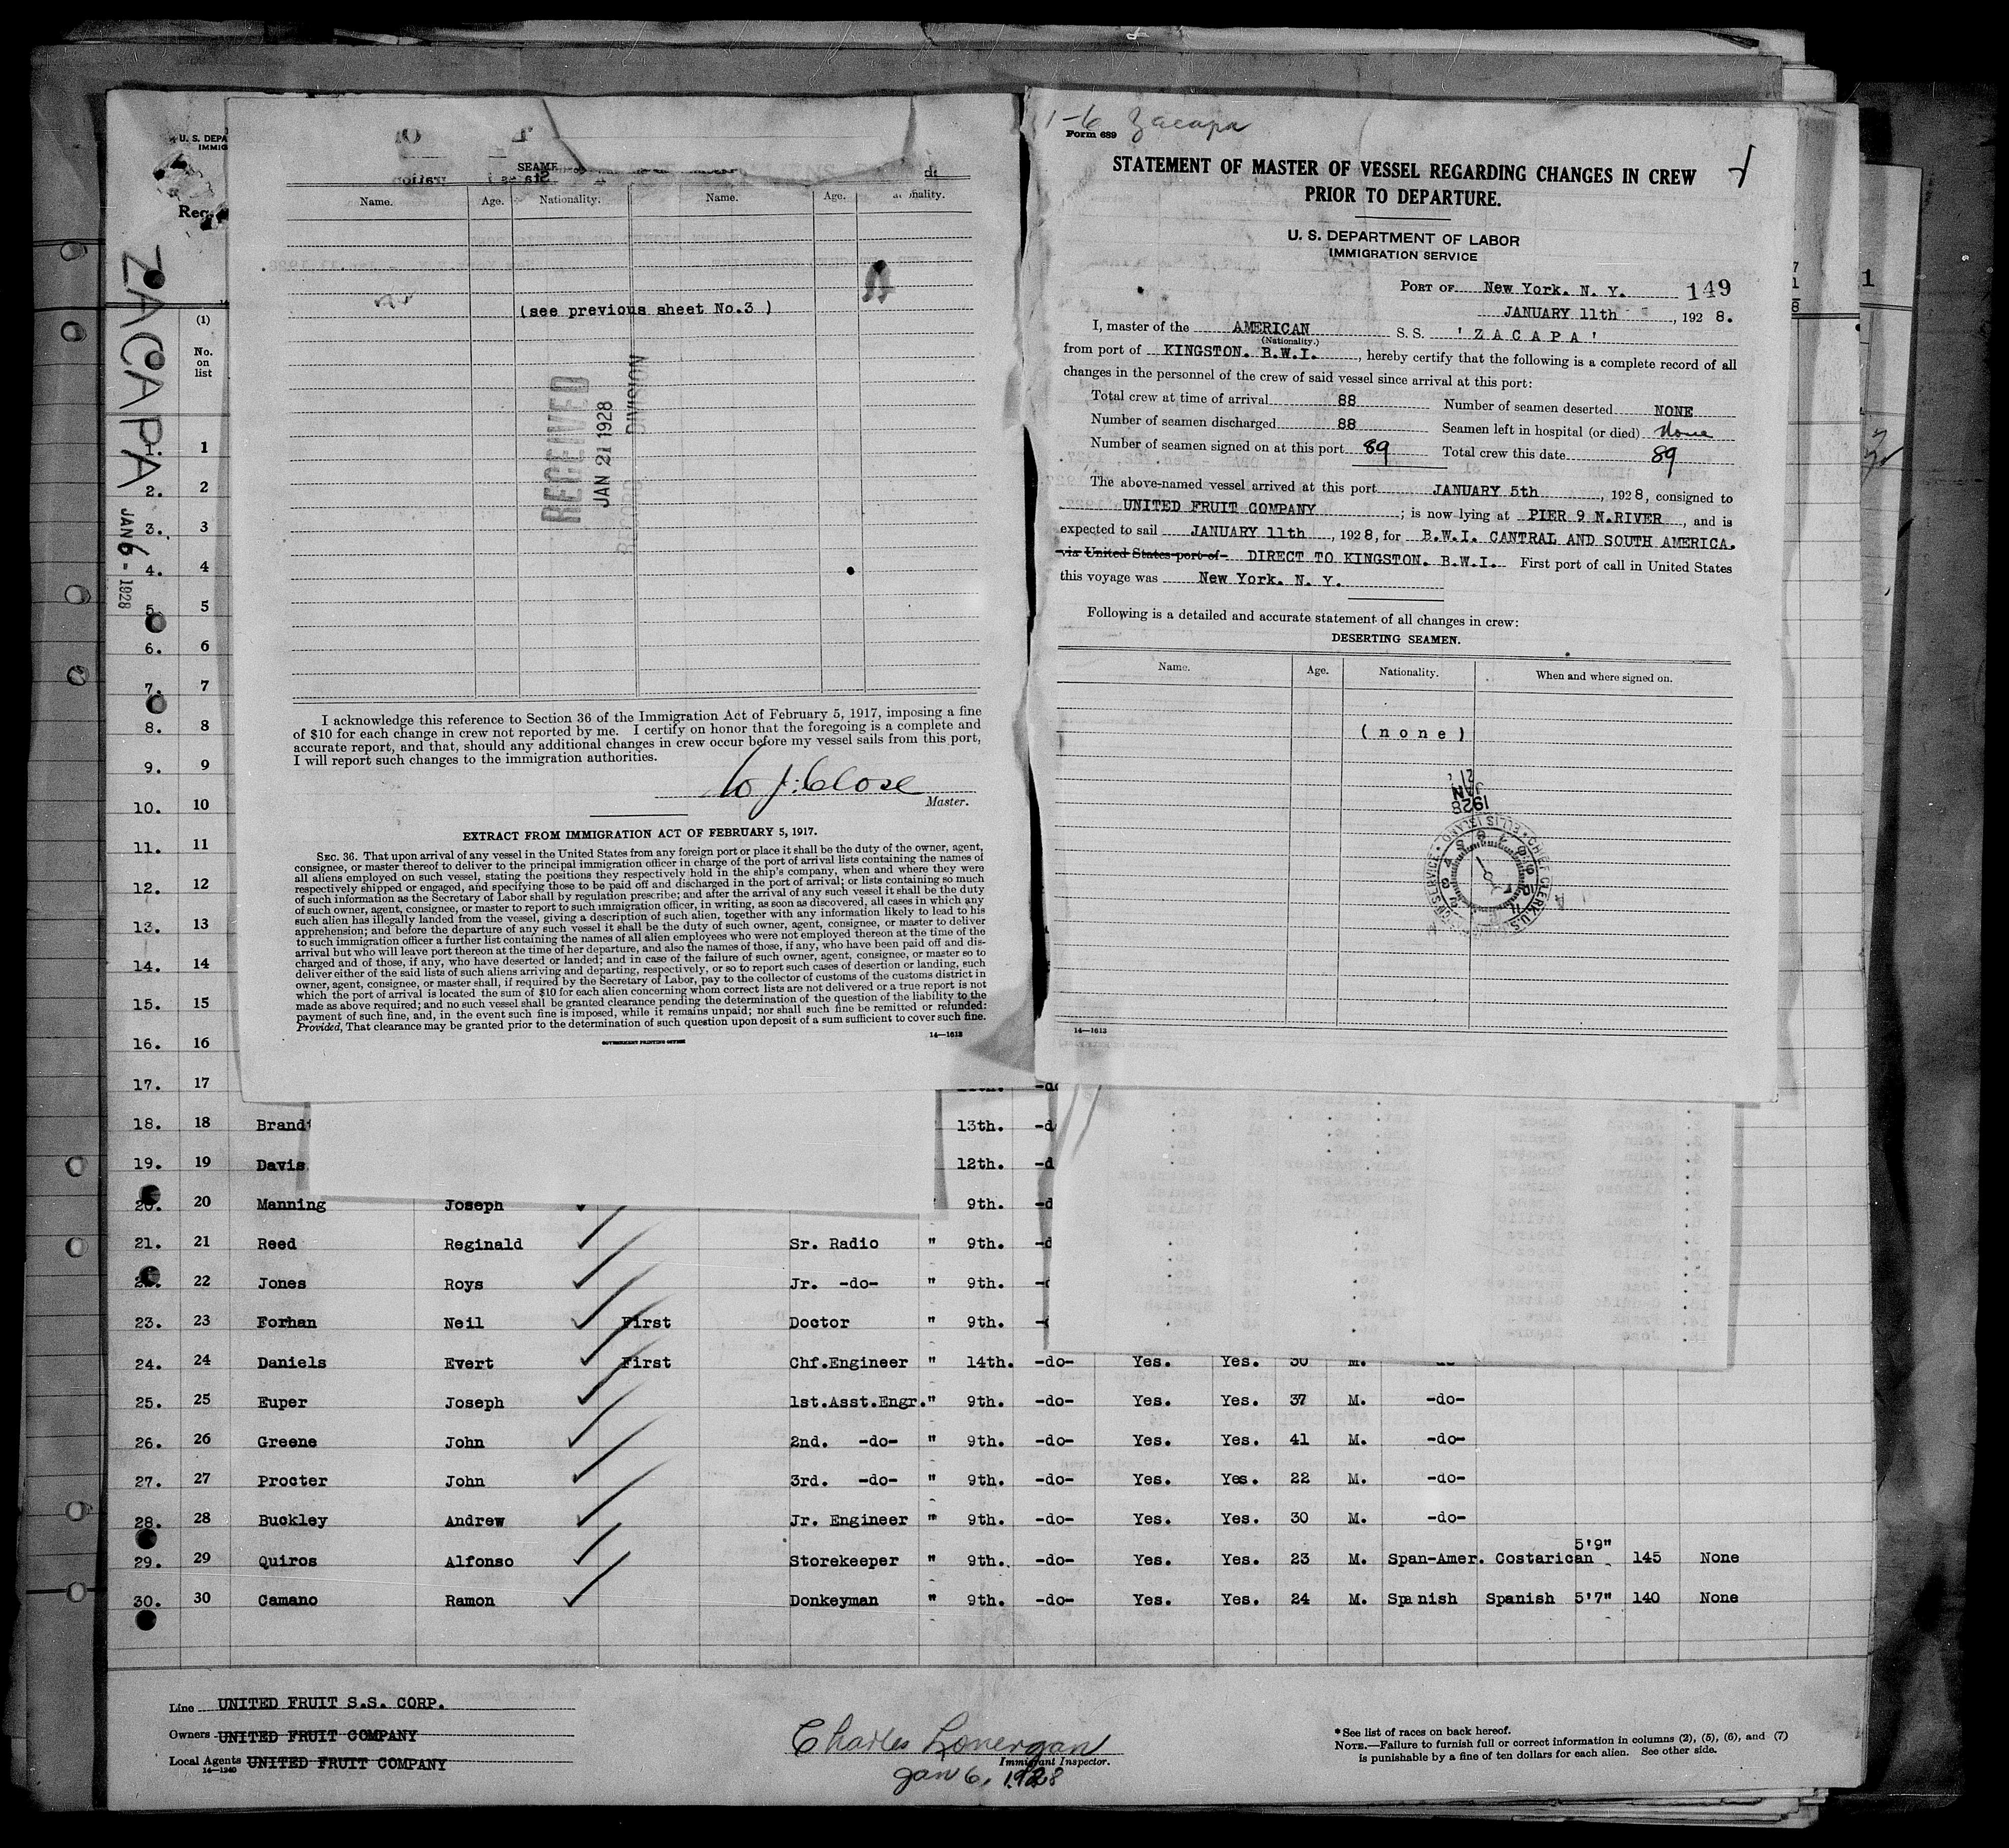 1-6 Zacapa
Form 689
STATEMENT OF MASTER OF VESSEL REGARDING CHANGES IN CREW
PRIOR TO DEPARTURE.
U. S. DEPARTMENT OF LABOR
IMMIGRATION SERVICE
PORT OF New York. N. Y. 149
JANUARY 11th , 192 8.
I, master of the AMERICAN S. S. ' Z A C A P A '
(Nationality.)
from port of KINGSTON. B.W.I. , hereby certify that the following is a complete record of all
changes in the personnel of the crew of said vessel since arrival at this port:
Total crew at time of arrival 88 Number of seamen deserted NONE
Number of seamen discharged 88 Seamen left in hospital (or died) None
Number of seamen signed on at this port 89 Total crew this date 89
The above-named vessel arrived at this port JANUARY 5th , 1928, consigned to
UNITED FRUIT COMPANY ; is now lying at PIER 9 N.RIVER , and is
expected to sail JANUARY 11th , 1928, for B.W.I. CANTRAL AND SOUTH AMERICA.
via United States port of DIRECT TO KINGSTON. B.W.I. First port of call in United States
this voyage was New York. N. Y.
Following is a detailed and accurate statement of all changes in crew:
DESERTING SEAMEN.
Name. Age. Nationality. When and where signed on.
( n o n e )
JAN 21 1928
CHIEF CLERK U.S. ELLIS ISLAND
14—1613
SEAME
Name. Age. Nationality. Name. Age. nality.
(see previous sheet No.3 )
RECEIVED
JAN 21 1928
RECORD DIVISION
I acknowledge this reference to Section 36 of the Immigration Act of February 5, 1917, imposing a fine
of $10 for each change in crew not reported by me. I certify on honor that the foregoing is a complete and
accurate report, and that, should any additional changes in crew occur before my vessel sails from this port,
I will report such changes to the immigration authorities.
W J. Close
Master.
EXTRACT FROM IMMIGRATION ACT OF FEBRUARY 5, 1917.
SEC. 36. That upon arrival of any vessel in the United States from any foreign port or place it shall be the duty of the owner, agent,
consignee, or master thereof to deliver to the principal immigration officer in charge of the port of arrival lists containing the names of
all aliens employed on such vessel, stating the positions they respectively hold in the ship's company, when and where they were
respectively shipped or engaged, and specifying those to be paid off and discharged in the port of arrival; or lists containing so much
of such information as the Secretary of Labor shall by regulation prescribe; and after the arrival of any such vessel it shall be the duty
of such owner, agent, consignee, or master to report to such immigration officer, in writing, as soon as discovered, all cases in which any
such alien has illegally landed from the vessel, giving a description of such alien, together with any information likely to lead to his
apprehension; and before the departure of any such vessel it shall be the duty of such owner, agent, consignee, or master to deliver
to such immigration officer a further list containing the names of all alien employees who were not employed thereon at the time of the
arrival but who will leave port thereon at the time of her departure, and also the names of those, if any, who have been paid off and dis-
charged and of those, if any, who have deserted or landed; and in case of the failure of such owner, agent, consignee, or master so to
deliver either of the said lists of such aliens arriving and departing, respectively, or so to report such cases of desertion or landing, such
owner, agent, consignee, or master shall, if required by the Secretary of Labor, pay to the collector of customs of the customs district in
which the port of arrival is located the sum of $10 for each alien concerning whom correct lists are not delivered or a true report is not
made as above required; and no such vessel shall be granted clearance pending the determination of the question of the liability to the
payment of such fine, and, in the event such fine is imposed, while it remains unpaid; nor shall such fine be remitted or refunded:
Provided, That clearance may be granted prior to the determination of such question upon deposit of a sum sufficient to cover such fine.
GOVERNMENT PRINTING OFFICE 14—1613
U. S. DEPA
IMMIG
Req.
ZACAPA JAN 6 - 1928
(1)
No.
on
list
1
2. 2
3. 3
4. 4
5. 5
6. 6
7. 7
8. 8
9. 9
10. 10
11. 11
12. 12
13. 13
14. 14
15. 15
16. 16
17. 17
18. 18 Brand 13th. -d
19. 19 Davis 12th. -d
20. 20 Manning Joseph 9th. -d
21. 21 Reed Reginald Sr. Radio " 9th. -d
22 Jones Roys Jr. -do- " 9th.
23. 23 Forhan Neil First Doctor " 9th.
24. 24 Daniels Evert First Chf.Engineer " 14th. -do- Yes. Yes. 50 M.
25. 25 Euper Joseph 1st.Asst.Engr." 9th. -do- Yes. Yes. 37 M. -do-
26. 26 Greene John 2nd. -do- " 9th. -do- Yes. Yes. 41 M. -do-
27. 27 Procter John 3rd. -do- " 9th. -do- Yes. Yes. 22 M. -do-
28. 28 Buckley Andrew Jr. Engineer " 9th. -do- Yes. Yes. 30 M. -do-
29. 29 Quiros Alfonso Storekeeper " 9th. -do- Yes. Yes. 23 M. Span-Amer. Costarican 5'9" 145 None
30. 30 Camano Ramon Donkeyman " 9th. -do- Yes. Yes. 24 M. Spanish Spanish 5'7" 140 None
Line UNITED FRUIT S.S. CORP.
Owners UNITED FRUIT COMPANY
Local Agents UNITED FRUIT COMPANY
14—1240
Charles Lonergan
Immigrant Inspector.
Jan 6, 1928
* See list of races on back hereof.
NOTE.—Failure to furnish full or correct information in columns (2), (5), (6), and (7)
is punishable by a fine of ten dollars for each alien. See other side.